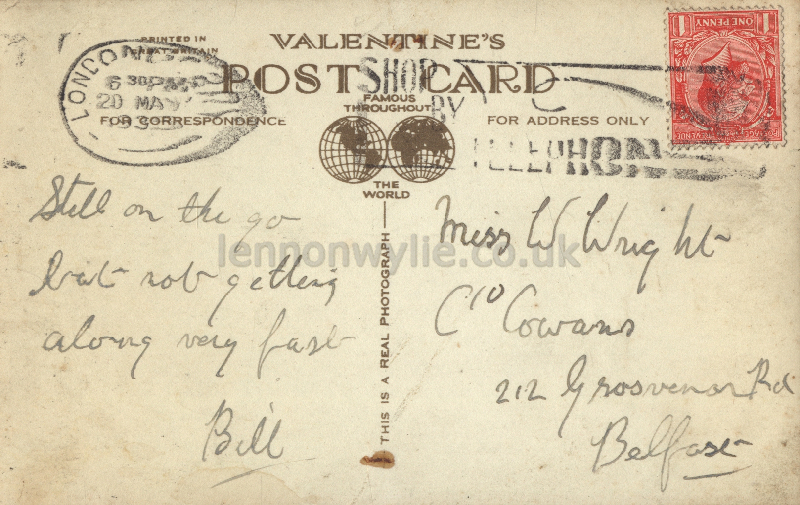 PRINTED IN
GREAT BRITAIN
VALENTINE'S
POST CARD
FAMOUS
THROUGHOUT
THE
WORLD
FOR CORRESPONDENCE
FOR ADDRESS ONLY
THIS IS A REAL PHOTOGRAPH
LONDON
6 30 PM
20 MAY
SHOP
BY
TELEPHONE
ONE PENNY
1 1
POSTAGE REVENUE
Still on the go
but not getting
along very fast
Bill
Miss W Wright
C/o Cowans
212 Grosvenor Rd
Belfast
lennonwylie.co.uk